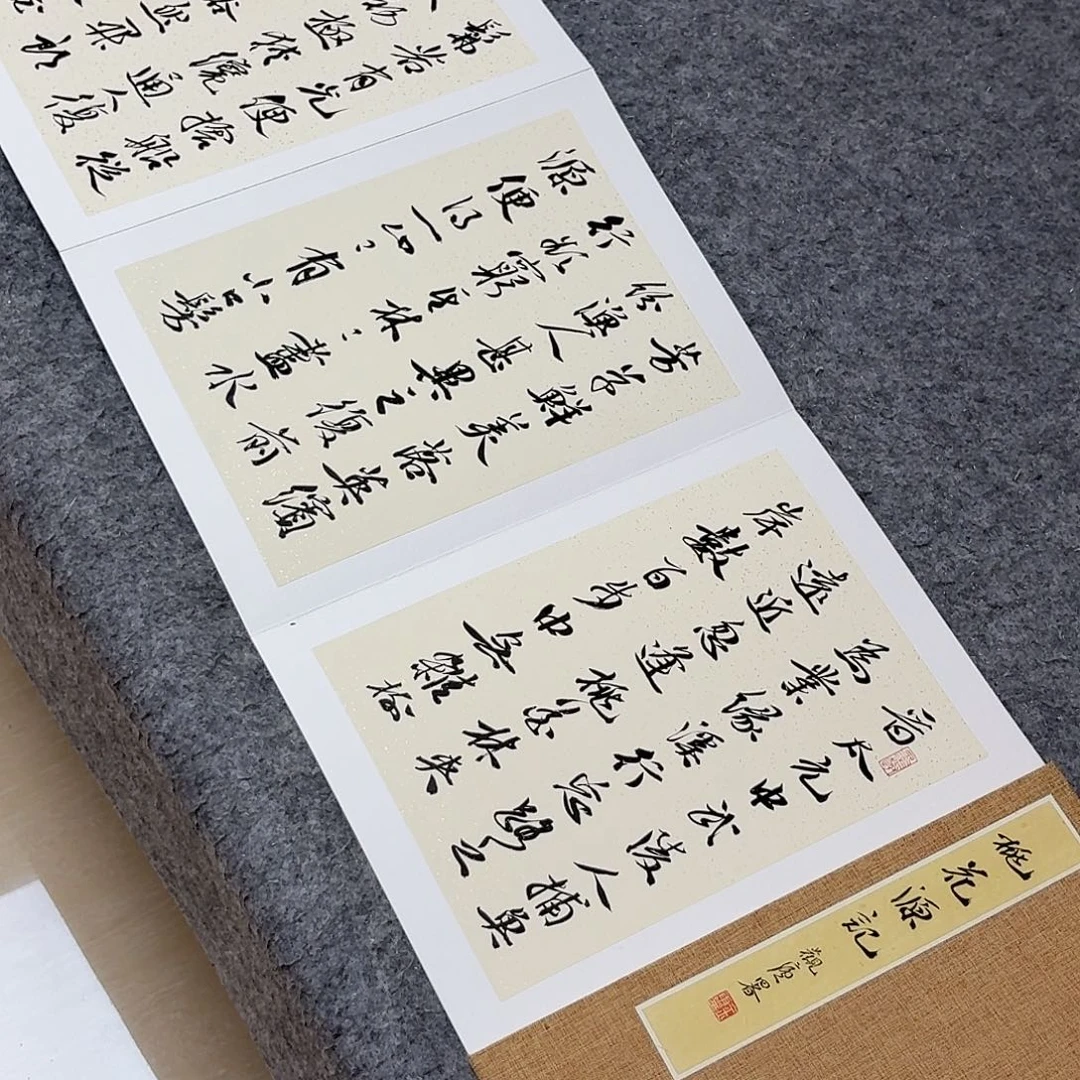 桃花源記
觀
署
晋太元中武陵人捕魚
為業緣溪行忘路之
遠近忽逢桃花林夾
岸數百步中無雜樹
芳草鮮美落英繽
紛漁人甚異之復前
行欲窮其林〻盡水
源便得一山〻有小口髣
髴若有光便捨船從
初極狹纔通人復
豁然開朗